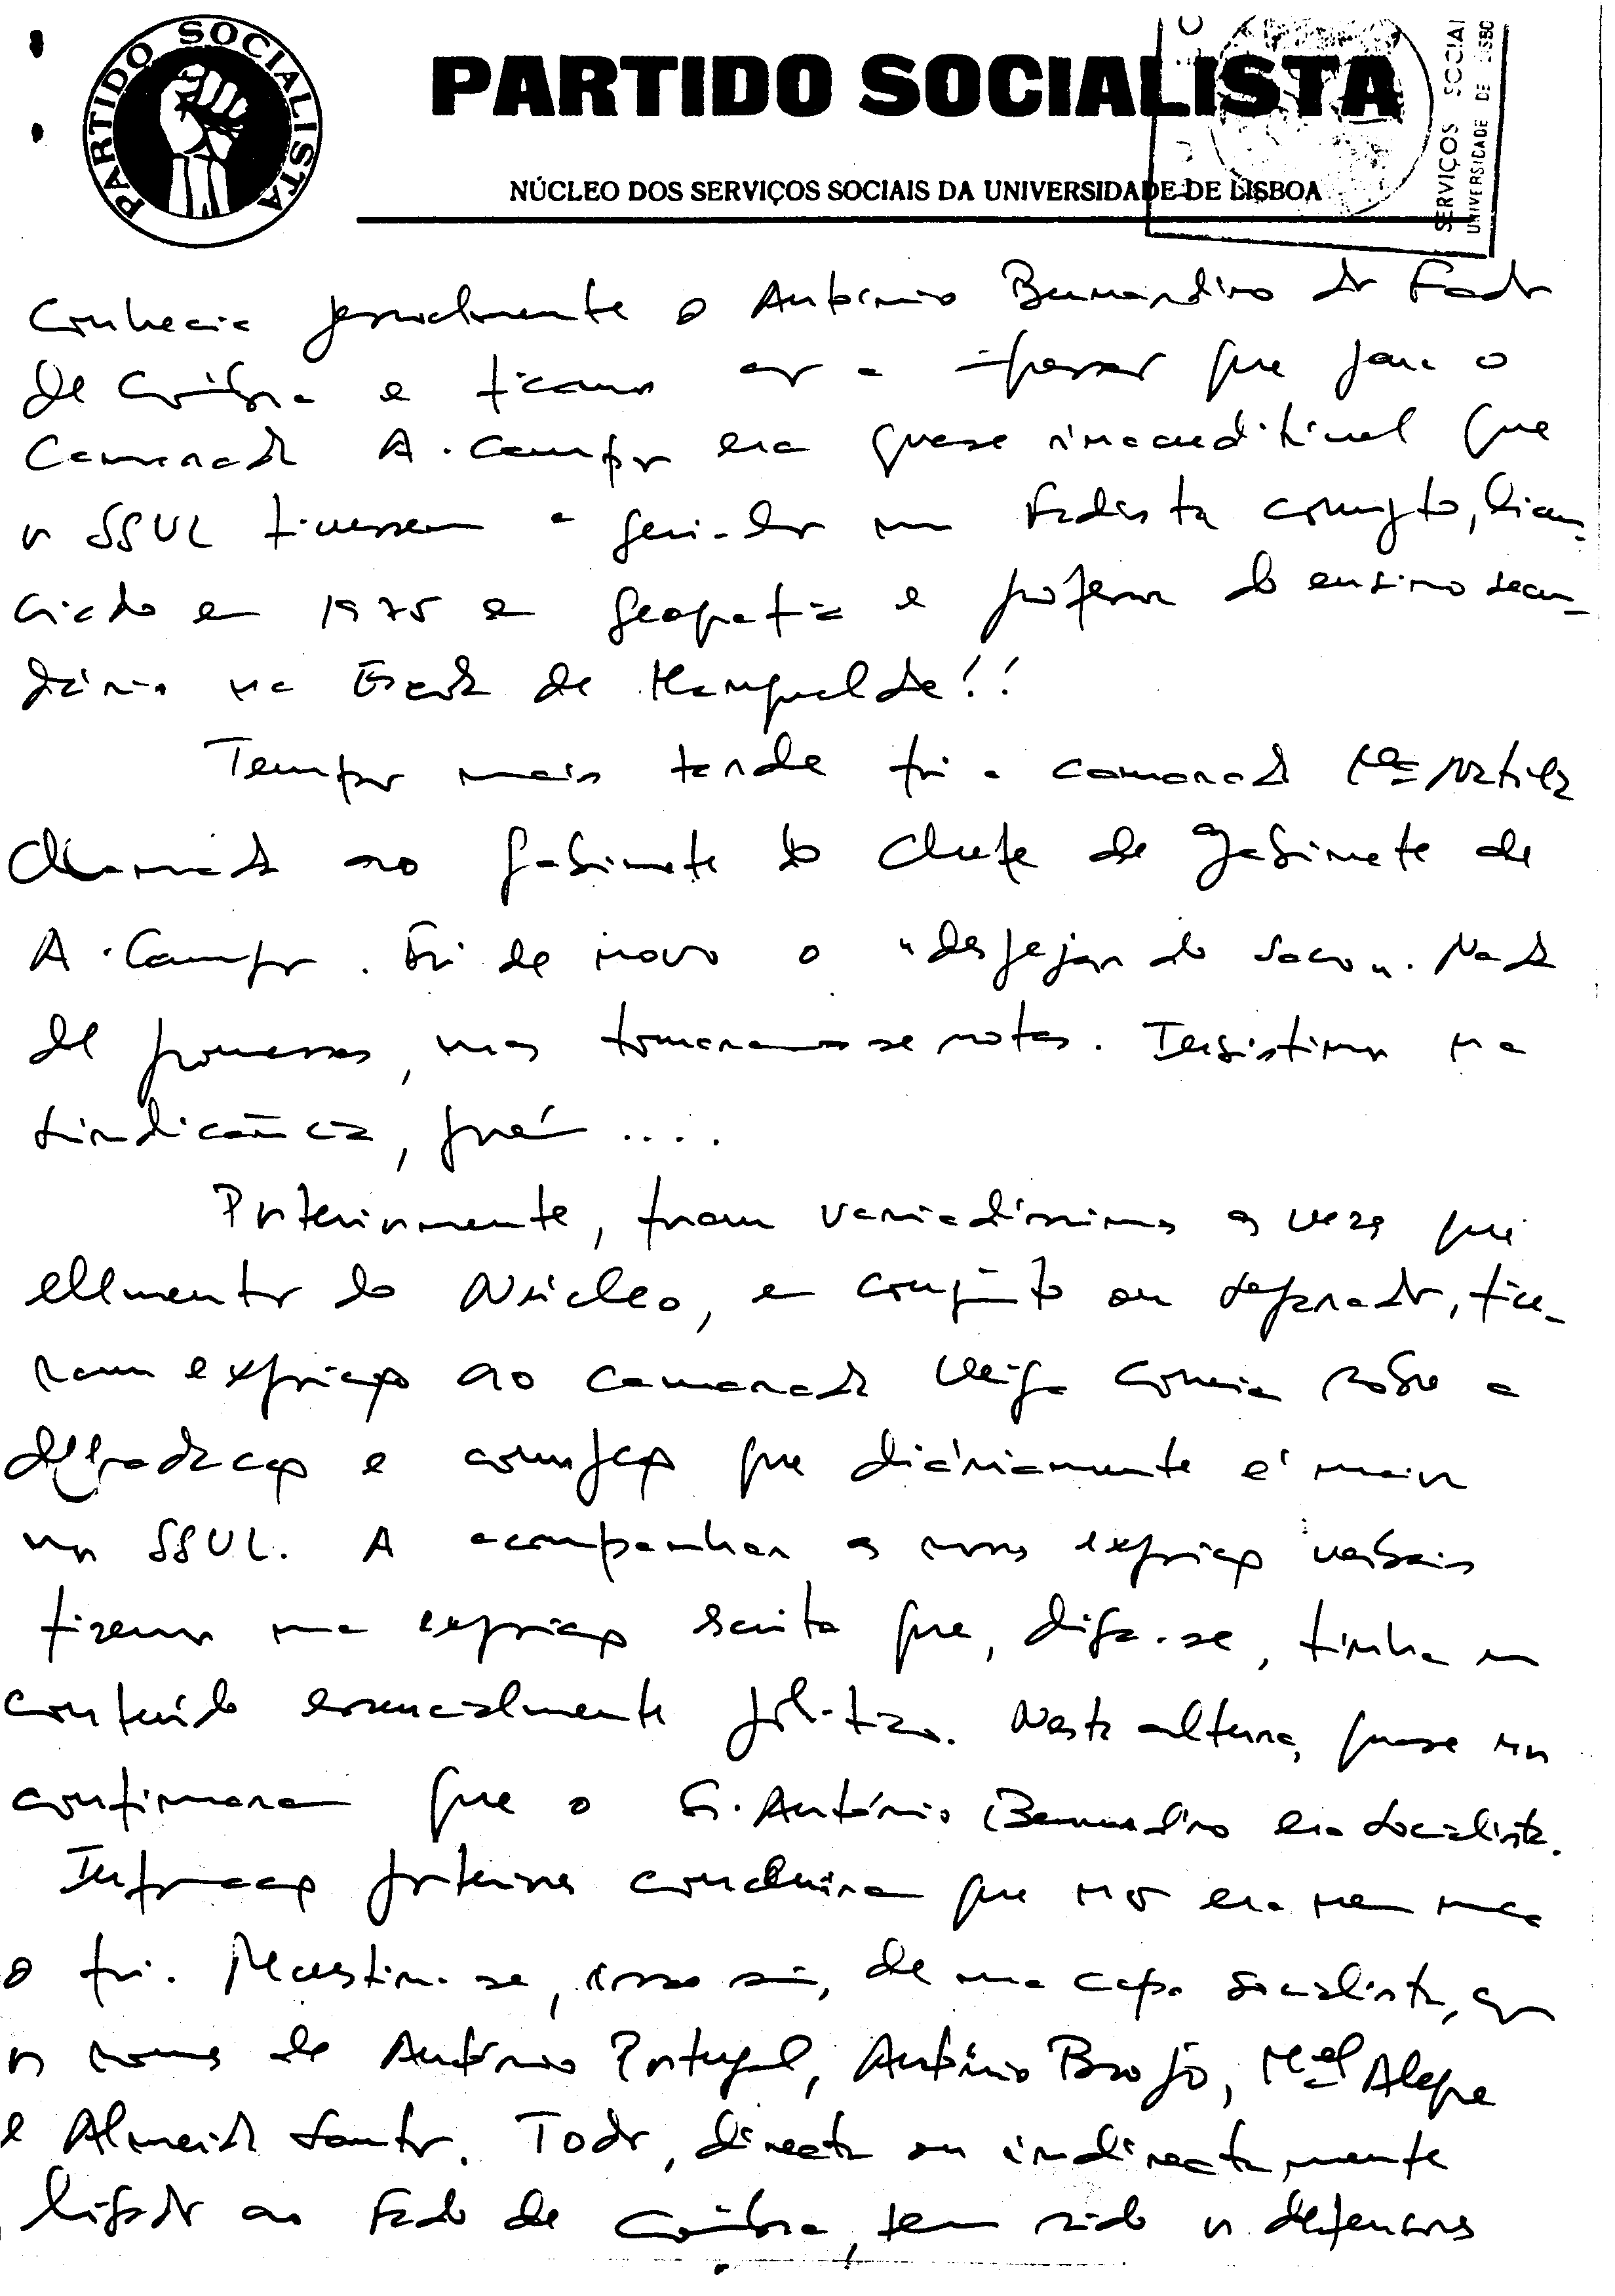 PARTIDO SOCIALISTA
PARTIDO SOCIALISTA
NÚCLEO DOS SERVIÇOS SOCIAIS DA UNIVERSIDADE DE LISBOA
SERVIÇOS SOCIAI
UNIVERSIDADE DE LISBO
Conhecia pessoalmente o António Bernardino do Fado
de Coimbra e ficamos com a impressão que para o
Camarada A. Campos era quase inacreditável que
os SSUL tivessem a geri-los um fadista corrupto, licen-
ciado em 1975 em geografia e professor do ensino secun-
dário na Escola de Mangualde!!
Tempos mais tarde foi a camarada Mª Natália
chamada ao gabinete do chefe de gabinete de
A. Campos. Foi de novo o "despejar do saco". Nada
de promessas, mas tomaram-se notas. Insistimos na
sindicância, porém ....
Posteriormente, foram variadíssimas as vezes que
elementos do Núcleo, em conjunto ou separados, fize-
ram exposição ao camarada Veiga Correia sobre a
degradação e corrupção que diáriamente é maior
nos SSUL. A acompanhar as novas exposição verbais
fizemos uma exposição escrita que, diga-se, tinha um
conteúdo essencialmente político. Nesta altura, quase nos
confirmaram que o Sr. António Bernardino era socialista.
Informação posteriores concluiram que não era nem nunca
o foi. Mascitou-se, isso sim, de uma capa socialista, com
os nomes de António Portugal, António Brojo, Mel Alegre
e Almeida Santos. Todos, directa ou indirectamente
ligados ao Fado de Coimbra, tem sido os defensores